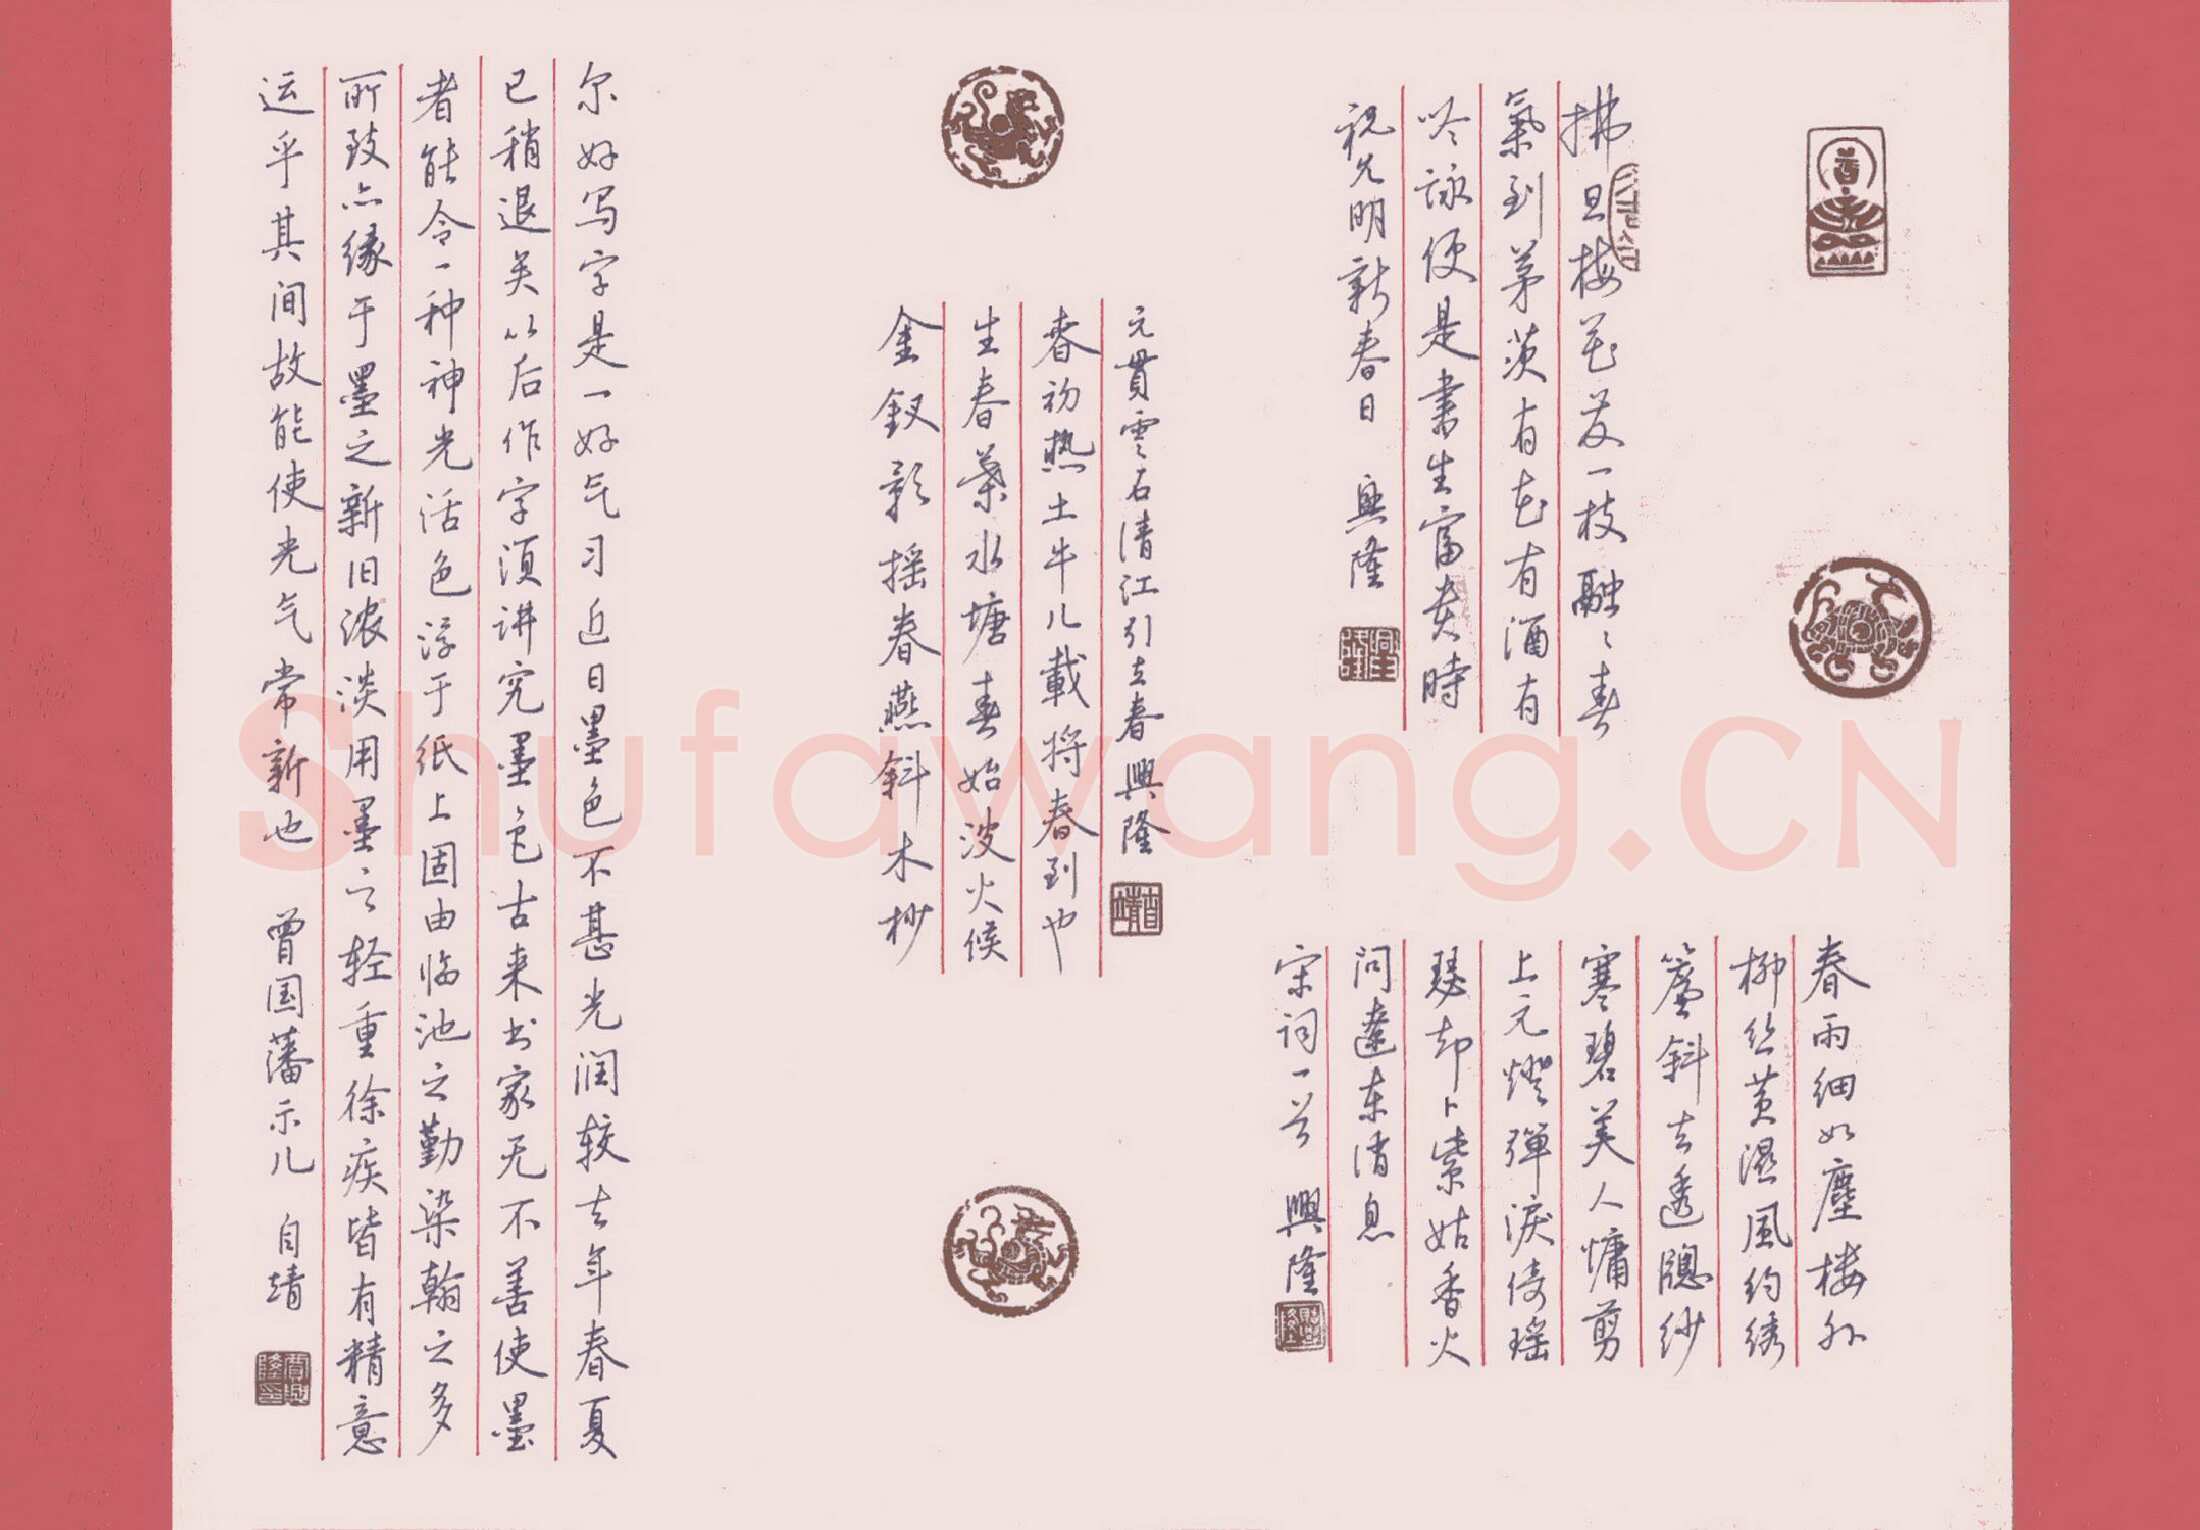 拂旦梅花发一枝融〻春
氣到茅茨有花有酒有
吟詠便是書生富貴時
祝允明新春日 興隆
春雨细如塵楼外
柳丝黄濕風约绣
簾斜去透牕纱
寒碧美人慵剪
上元燈彈淚倚瑶
瑟却卜紫姑香火
问遼东消息
宋词一首 興隆
元貫雲石清江引立春 興隆
春初热土牛儿載将春到也
生春葉水塘春始波火候
金釵影摇春燕斜木杪
尔好写字是一好气习近日墨色不甚光润较去年春夏
已稍退矣以后作字须讲究墨色古来书家无不善使墨
者能令一种神光活色浮于纸上固由临池之勤染翰之多
所致亦缘于墨之新旧浓淡用墨之轻重徐疾皆有精意
运乎其间故能使光气常新也 曾国藩示儿 自靖
Shufawang.CN